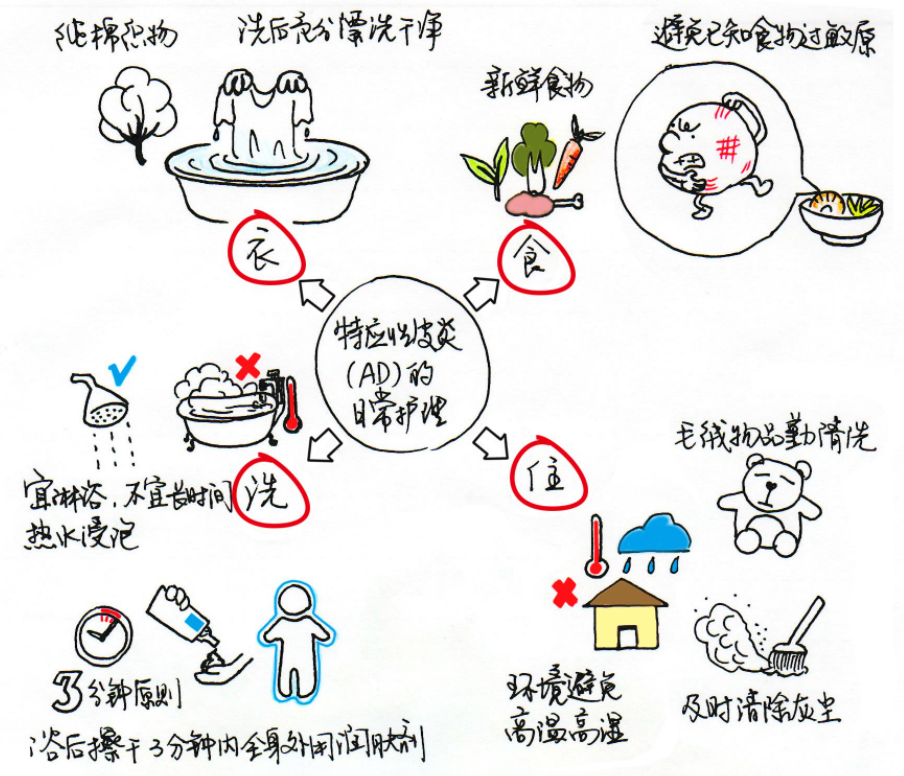 纯棉织物
洗后充分漂洗干净
新鲜食物
避免已知食物过敏原
衣
食
特应性皮炎
(AD)的
日常护理
洗
住
宜淋浴,不宜长时间
热水浸泡
毛绒物品勤清洗
3分钟原则
浴后擦干3分钟内全身外用润肤剂
环境避免
高温高湿
及时清除灰尘